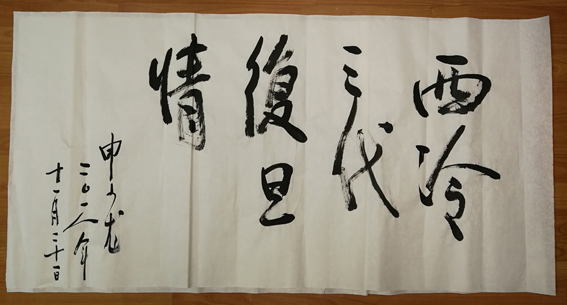 西泠
三代
復旦
情
申之龙
二〇一八年
十一月二十日